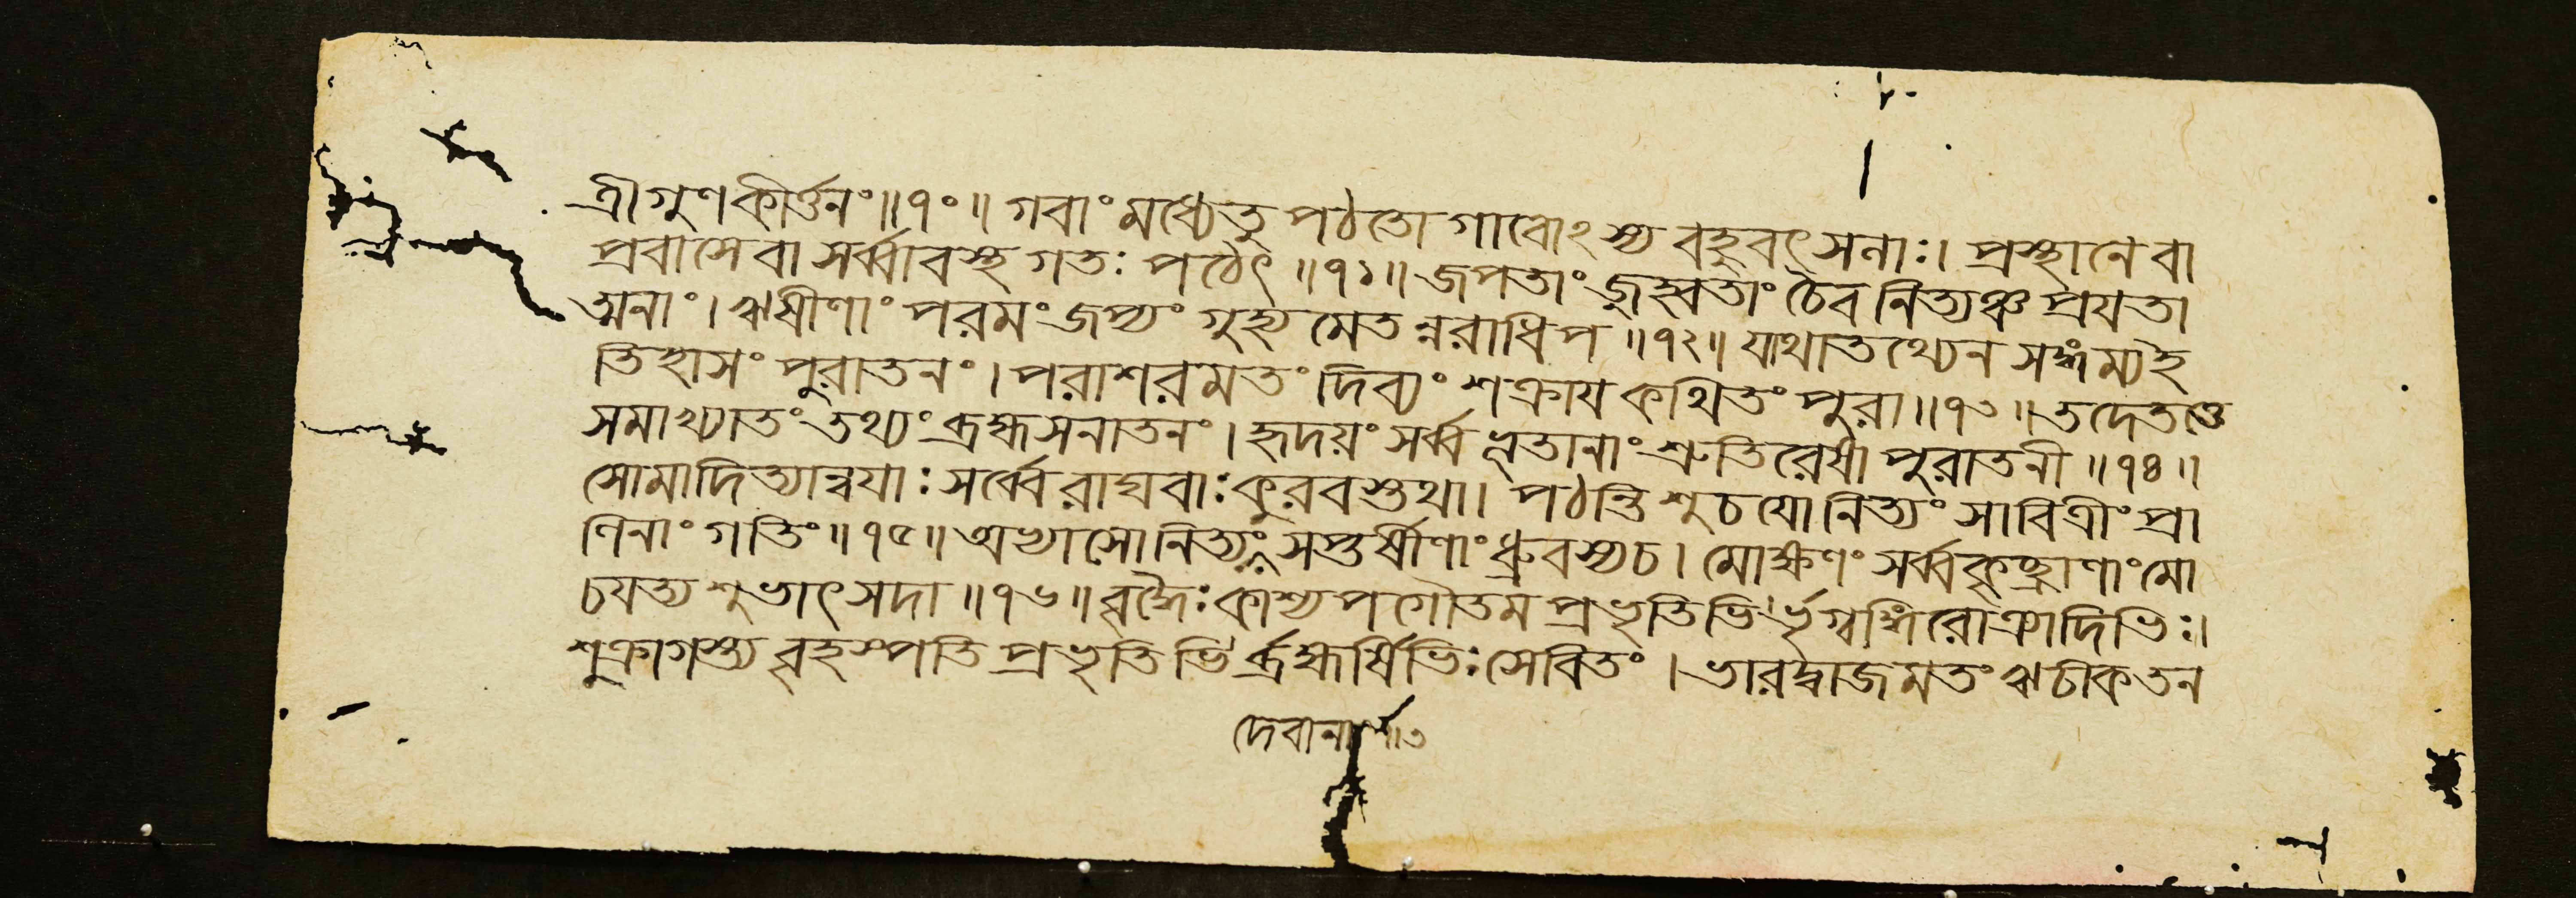 ত্রীগুণকীর্ত্তনং॥৭০॥ গবাং মধ্যেতু পঠতো গাবোঽস্য বহুবৎসনাঃ। প্রস্থানে বা
প্রবাসে বা সর্ব্বাবস্থ গতঃ পঠেৎ॥৭১॥ জপতাং জুহ্বতাং চৈব নিত্যঞ্চ প্রযতা
ত্মনাং। ঋষীণাং পরমং জপ্যং গুহ্য মেতন্নরাধিপ॥৭২॥ যাথাতথ্যেন সম্নংম্যই
তিহাসং পুরাতনং। পরাশরমতং দিব্যং শক্রায কথিতং পুরা॥৭৩॥ তদেতত্তে
সমাখ্যাতং তথ্যং ব্রহ্মসনাতনং। হৃদয়ং সর্ব্বভূতানাং শ্রুতিরেষা পুরাতনী॥৭৪॥
সোমাদিত্যান্বযাঃ সর্ব্বে রাঘবাঃ কুরবস্তথা। পঠন্তি শুচযো নিত্যং সাবিত্রীং প্রা
ণিনাং গতিং॥৭৫॥ অভ্যাসো নিত্যং সপ্তর্ষীণাং ধ্রুবস্য চ। মোক্ষণং সর্ব্বকৃচ্ছ্রাণাং মো
চযত্য শুভাৎ সদা॥৭৬॥ বৃদ্ধৈঃ কাশ্যপগৌতম প্রভৃতিভির্ভৃগ্বঙ্গিরোত্র্যাদিভিঃ।
শুক্রাগস্ত্য বৃহস্পতি প্রভৃতিভির্ব্রহ্মর্ষিভিঃ সেবিতং। ভারদ্বাজমতং ঋচীকতন
দেবানা